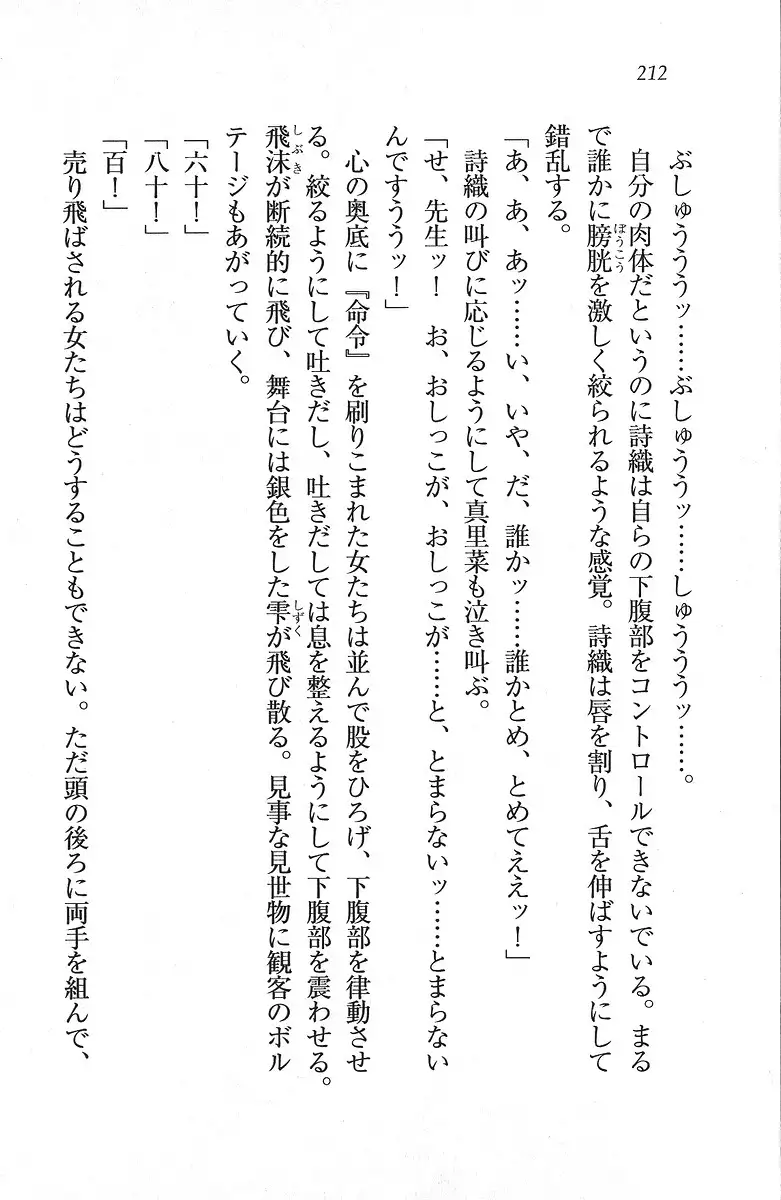 212
ぶしゅうううッ……ぶしゅううッ……しゅうううッ……。
自分の肉体だというのに詩織は自らの下腹部をコントロールできないでいる。まる
で誰かに膀胱を激しく絞られるような感覚。詩織は唇を割り、舌を伸ばすようにして
錯乱する。
「あ、あ、あッ……い、いや、だ、誰かッ……誰かとめ、とめてええッ！」
詩織の叫びに応じるようにして真里菜も泣き叫ぶ。
「せ、先生ッ！　お、おしっこが、おしっこが……と、とまらないッ……とまらない
んですううッ！」
心の奥底に『命令』を刷りこまれた女たちは並んで股をひろげ、下腹部を律動させ
る。絞るようにして吐きだし、吐きだしては息を整えるようにして下腹部を震わせる。
飛沫が断続的に飛び、舞台には銀色をした雫が飛び散る。見事な見世物に観客のボル
テージもあがっていく。
「六十！」
「八十！」
「百！」
売り飛ばされる女たちはどうすることもできない。ただ頭の後ろに両手を組んで、
ぼうこう
しぶき
しずく